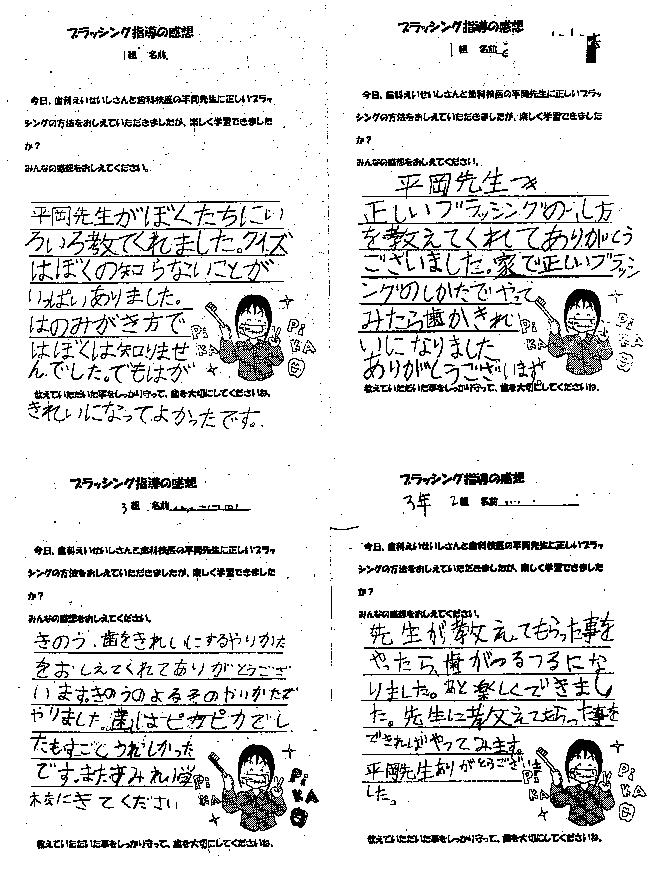 ブラッシング指導の感想
1組 名前
今日、歯科えいせいしさんと歯科校医の平岡先生に正しいブラッ
シングの方法をおしえていただきましたが、楽しく学習できました
か?
みんなの感想をおしえてください。
平岡先生がぼくたちにい
ろいろ教てくれました。クイズ
はぼくの知らないことが
いっぱいありました。
はのみがき方で
はぼくは知りませ
んでした。でもはが
PiKA
PiKA
教えていただいた事をしっかり守って、歯を大切にしてくださいね。
きれいになってよかったです。
ブラッシング指導の感想
1組 名前
今日、歯科えいせいしさんと歯科校医の平岡先生に正しいブラッ
シングの方法をおしえていただきましたが、楽しく学習できました
か?
みんなの感想をおしえてください。
平岡先生つき
正しいブラッシングのし方
を教えてくれてありがとう
ございました。家で正しいブラッシ
ングのしかたでやって
みたら歯がきれ
いになりました
ありがとうございます
PiKA
PiKA
教えていただいた事をしっかり守って、歯を大切にしてくださいね。
ブラッシング指導の感想
3組 名前
今日、歯科えいせいしさんと歯科校医の平岡先生に正しいブラッ
シングの方法をおしえていただきましたが、楽しく学習できました
か?
みんなの感想をおしえてください。
きのう、歯をきれいにするやりかた
をおしえてくれてありがとうござ
いますきのうのよるそのやりかたで
やりました。歯はピカピカでし
たものすごくうれしかった
です。またすみれい学
校にきてください
PiKA
PiKA
教えていただいた事をしっかり守って、歯を大切にしてくださいね。
ブラッシング指導の感想
3年 2組 名前
今日、歯科えいせいしさんと歯科校医の平岡先生に正しいブラッ
シングの方法をおしえていただきましたが、楽しく学習できました
か?
みんなの感想をおしえてください。
先生が教えてもらった事を
やったら、歯がつるつるにな
りました。あと楽しくできまし
た。先生に教えてもらった事を
できればやってみます。
平岡先生ありがとうございま
した。
PiKA
PiKA
教えていただいた事をしっかり守って、歯を大切にしてくださいね。